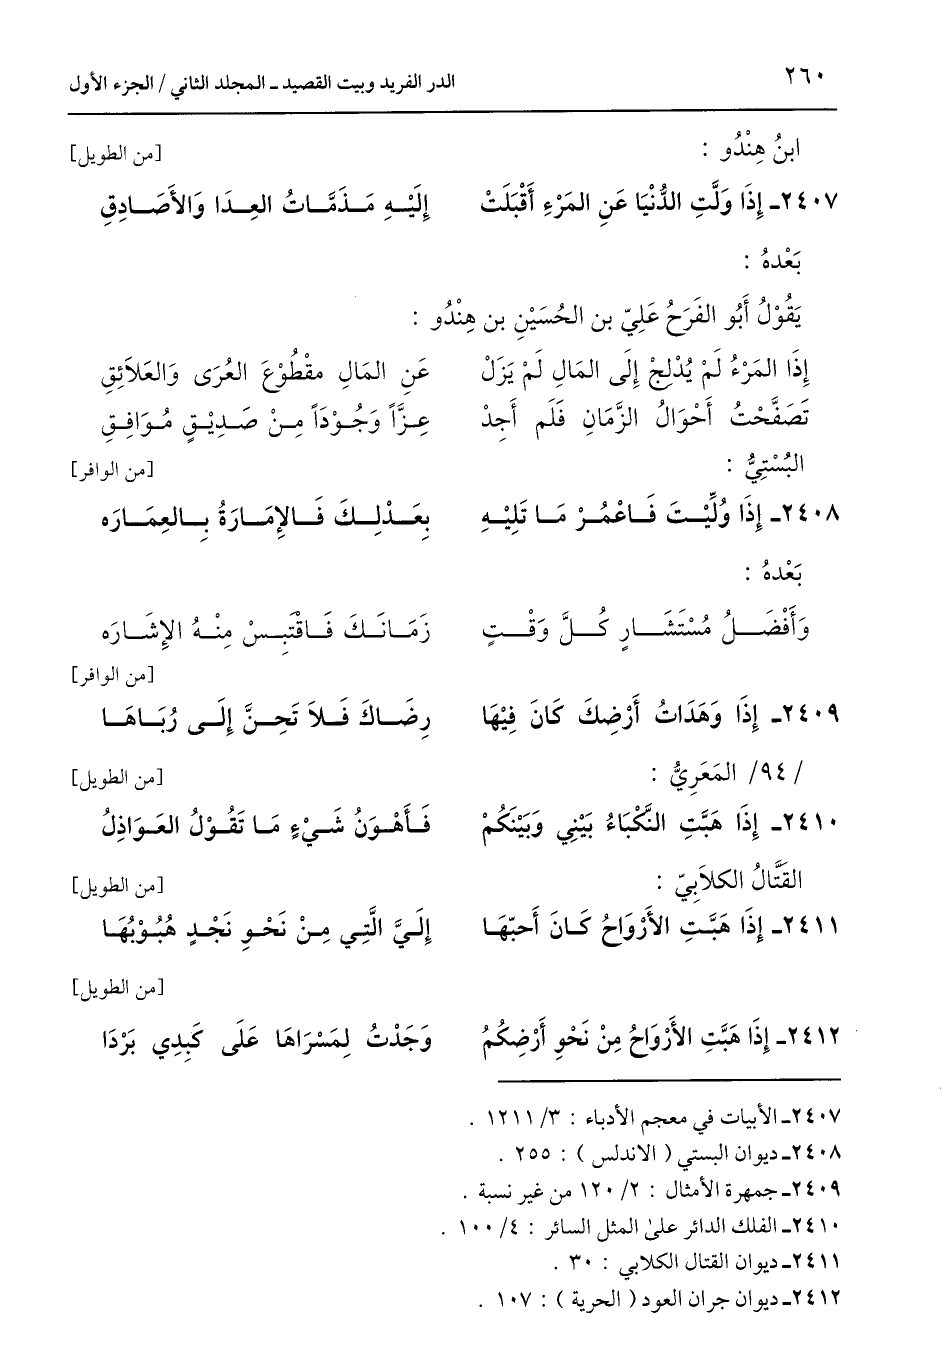 ٢٦٠ الدر الفريد وبيت القصيد ـ المجلد الثاني / الجزء الأول
ابنُ هِنْدُو : [من الطويل]
٢٤٠٧ـ إِذَا وَلَّتِ الدُّنْيَا عَنِ المَرْءِ أَقْبَلَتْ إِلَيْهِ مَذَمَّاتُ العِدَا وَالأَصَادِقِ
بَعْدهُ :
يَقُوْلُ أَبُو الفَرَجُ عَلِيّ بن الحُسَيْنِ بن هِنْدُو :
إِذَا المَرْءُ لَمْ يُدْلِجْ إِلَى المَالِ لَمْ يَزَلْ عَنِ المَالِ مقْطُوْعَ العُرَى وَالعَلاَئِقِ
تَصَفَّحْتُ أَحْوَالُ الزَّمَانِ فَلَم أَجِدْ عِزَّاً وَجُوْدَاً مِنْ صَدِيْقٍ مُوَافِقِ
البُسْتِيُّ : [من الوافر]
٢٤٠٨ـ إِذَا وُلِّيْتَ فَاعْمُرْ مَا تَلِيْهِ بِعَدْلِكَ فَالإِمَارَةُ بِالعِمَارَه
بَعْدهُ :
وَأَفْضَلُ مُسْتَشَارٍ كُلَّ وَقْتٍ زَمَانَكَ فَاقْتَبِسْ مِنْهُ الإِشَارَه
[من الوافر]
٢٤٠٩ـ إِذَا وَهَدَاتُ أَرْضِكَ كَانَ فِيْهَا رِضَاكَ فَلاَ تَحِنَّ إِلَى رُبَاهَا
/ ٩٤/ المَعَرِيُّ : [من الطويل]
٢٤١٠ـ إِذَا هَبَّتِ النَّكْبَاءُ بَيْنِي وَبَيْنَكُمْ فَأَهْوَنُ شَيْءٍ مَا تَقُوْلُ العَوَاذِلُ
القَتَّالُ الكلاَبِيّ : [من الطويل]
٢٤١١ـ إِذَا هَبَّتِ الأَرْوَاحُ كَانَ أَحبّهَا إِلَيَّ الَّتِي مِنْ نَحْوِ نَجْدٍ هُبُوْبُهَا
[من الطويل]
٢٤١٢ـ إِذَا هَبَّتِ الأَرْوَاحُ مِنْ نَحْوِ أَرْضِكُمُ وَجَدْتُ لِمَسْرَاهَا عَلَى كَبِدِي بَرْدَا
٢٤٠٧ـ الأبيات في معجم الأدباء : ٣/ ١٢١١ .
٢٤٠٨ـ ديوان البستي ( الاندلس ) : ٢٥٥ .
٢٤٠٩ـ جمهرة الأمثال : ٢/ ١٢٠ من غير نسبة .
٢٤١٠ـ الفلك الدائر على المثل السائر : ٤/ ١٠٠ .
٢٤١١ـ ديوان القتال الكلابي : ٣٠ .
٢٤١٢ـ ديوان جران العود ( الحرية ) : ١٠٧ .